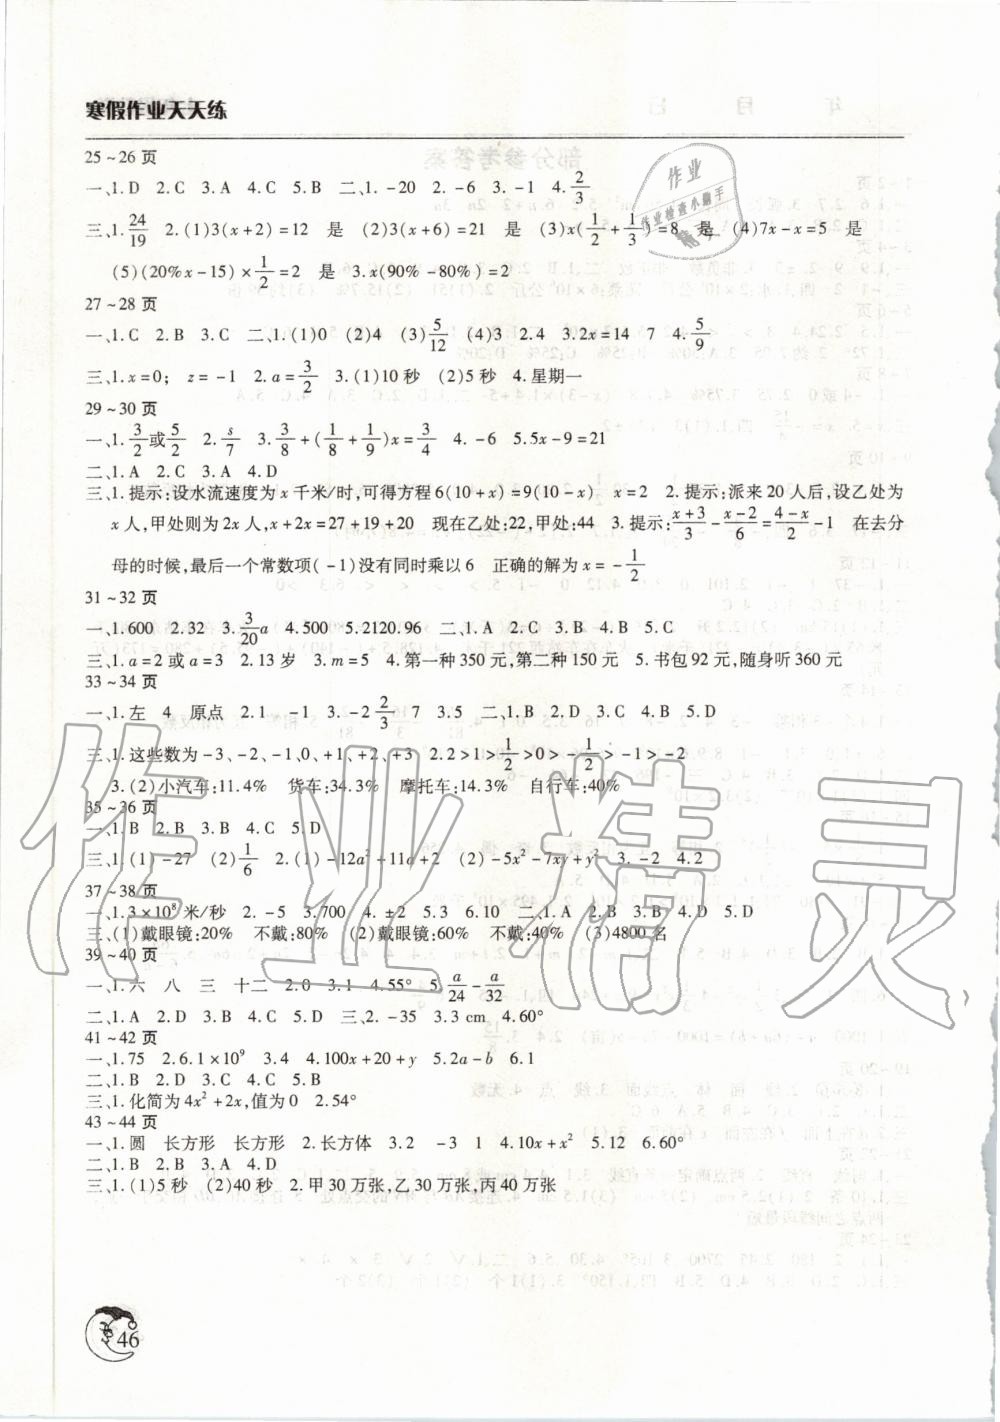 寒假作业天天练
25~26 页
一、1. D 2. C 3. A 4. C 5. B 二、1. -20 2. -6 3. -1 4. 2/3
三、1. 24/19 2. (1)3(x+2)=12 是 (2)3(x+6)=21 是 (3)x(1/2+1/3)=8 是 (4)7x-x=5 是
(5)(20%x-15)×1/2=2 是 3. x(90%-80%)=2
27~28 页
一、1. C 2. B 3. C 二、1. (1)0 (2)4 (3)5/12 (4)3 2. 4 3. 2x=14 7 4. 5/9
三、1. x=0; z=-1 2. a=3/2 3. (1)10 秒 (2)5 秒 4. 星期一
29~30 页
一、1. 3/2或5/2 2. s/7 3. 3/8+(1/8+1/9)x=3/4 4. -6 5. 5x-9=21
二、1. A 2. C 3. A 4. D
三、1. 提示:设水流速度为 x 千米/时,可得方程 6(10+x)=9(10-x) x=2 2. 提示:派来 20 人后,设乙处为
x 人,甲处则为 2x 人,x+2x=27+19+20 现在乙处:22,甲处:44 3. 提示:(x+3)/3-(x-2)/6=(4-x)/2-1 在去分
母的时候,最后一个常数项(-1)没有同时乘以 6 正确的解为 x=-1/2
31~32 页
一、1. 600 2. 32 3. 3/20 a 4. 500 5. 2120.96 二、1. A 2. C 3. B 4. B 5. C
三、1. a=2 或 a=3 2. 13 岁 3. m=5 4. 第一种 350 元,第二种 150 元 5. 书包 92 元,随身听 360 元
33~34 页
一、1. 左 4 原点 2. 1 -1 3. -2 2/3 7 3. 5 二、1. B 2. D 3. C 4. B 5. D
三、1. 这些数为-3、-2、-1、0、+1、+2、+3 2. 2>1>1/2>0>-1/2>-1>-2
3. (2)小汽车:11.4% 货车:34.3% 摩托车:14.3% 自行车:40%
35~36 页
一、1. B 2. B 3. B 4. C 5. D
三、1. (1)-27 (2)1/6 2. (1)-12a²+11a+2 (2)-5x²-7xy+y² 3. -2 4. 2
37~38 页
一、1. 3×10⁸ 米/秒 2. -5 3. 700 4. ±2 5. 3 6. 10 二、1. A 2. B 3. B 4. D 5. D
三、(1)戴眼镜:20% 不戴:80% (2)戴眼镜:60% 不戴:40% (3)4800 名
39~40 页
一、1. 六 八 三 十二 2. 0 3. 1 4. 55° 5. a/24-a/32
二、1. A 2. D 3. C 4. C 5. D 三、2. -35 3. 3 cm 4. 60°
41~42 页
一、1. 75 2. 6.1×10⁹ 3. 4 4. 100x+20+y 5. 2a-b 6. 1
二、1. D 2. D 3. B 4. C 5. B
三、1. 化简为 4x²+2x,值为 0 2. 54°
43~44 页
一、1. 圆 长方形 长方形 2. 长方体 3. 2 -3 1 4. 10x+x² 5. 12 6. 60°
二、1. B 2. B 3. A 4. D
三、1. (1)5 秒 (2)40 秒 2. 甲 30 万张,乙 30 万张,丙 40 万张
46
作业精灵
作业
作业检查小助手